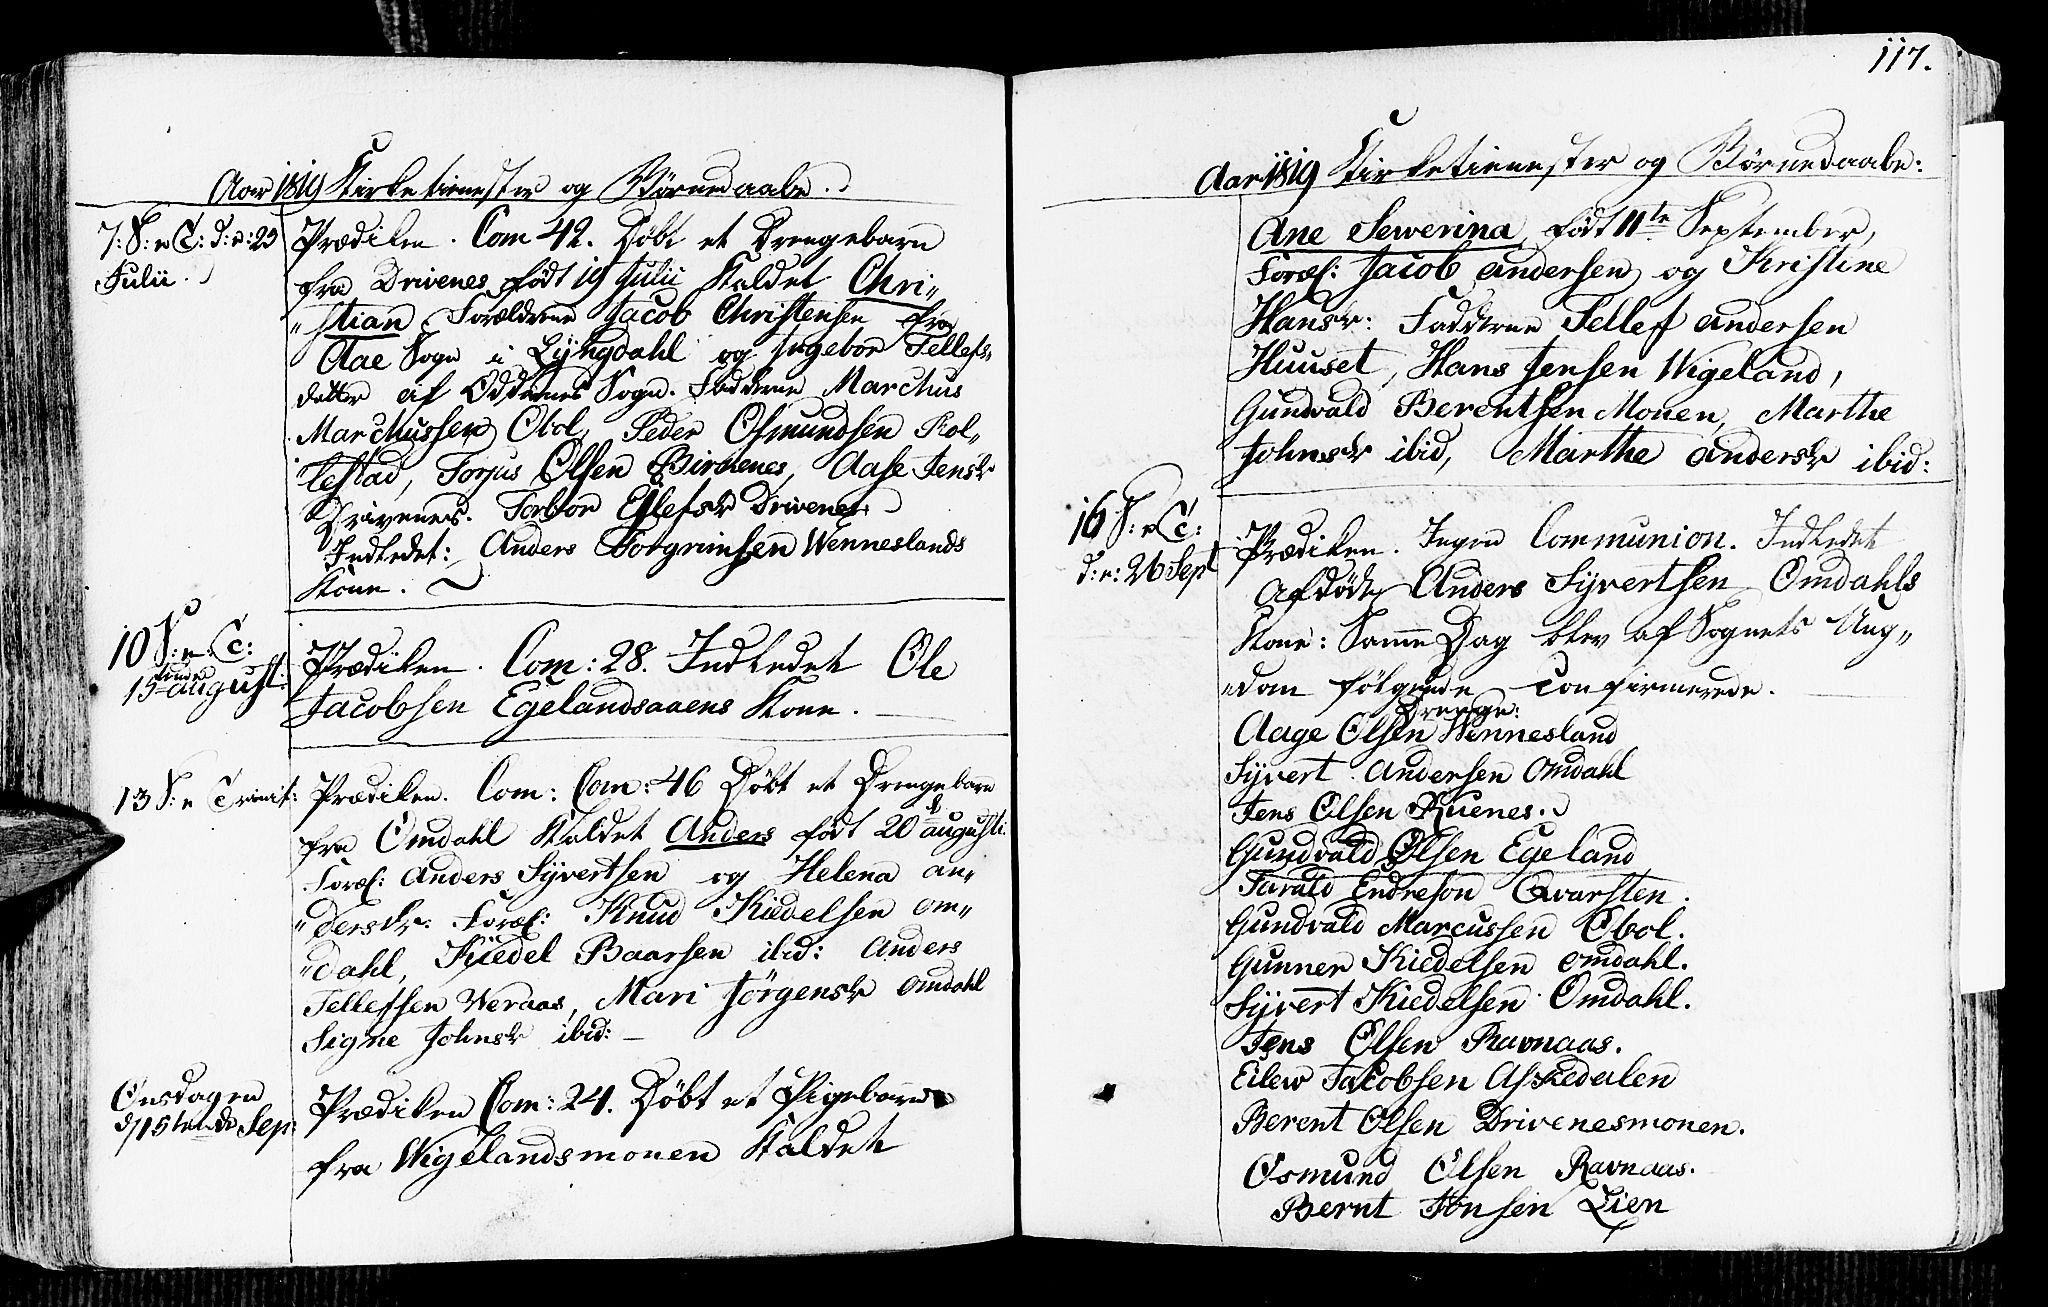 Aar 1819 Kirketienester og Børnedaabe.
7: S: e T: d: e: 25
Julii.
Prædiken. Com 42. Døbt et Drengebarn
fra Drivenes født 19 Julii kaldet Chri„
„stian, Forældrene Jacob Christensen fra
Aae Sogn i Lyngdahl og Ingebor Tellefs„
datter af Oddernes Sogn. Fadderne Marchus
Marchussen Obol, Peder Osmundsen Rol„
„lestad, Torjus Olsen Birchenes, Aase Jensdr
Drivenes. Torbor Ellefsdr Drivenes.
Indledet: Anders Torgrimsen Wenneslands
Kone.
10 S: e. T:
15 august:
Prædiken. Com: 28. Indledet Ole
Jacobsen Egelandsaaens Kone.
13 S: e Trinit:
Prædiken. Com: Com: 46 Døbt et Drengebarn
fra Omdahl kaldet Anders født 20 augusti
Foræl: Anders Syvertsen og Helena an„
„dersdr. Foræl: Knud Kiedelsen om„
„dahl, Kiedel Baarsen ibid: Anders
Tellefsen Weraas, Mari Jørgensdr omdahl
Signe Johnsdr ibid:
Onsdagen
d/15tende Sep:
Prædiken Com: 24. Døbt et Pigebarn
fra Wigelandsmonen kaldet
117.
Aar 1819 Kirketienester og Børnedaabe:
Ane Sewerina, født 11te September,
Foræl: Jacob andersen og Kristine
Hansdr: Fadderne Tellef andersen
Huuset, Hans Jensen Wigeland,
Gundvald Berentsen Monen, Marthe
Johnsdr ibid, Marthe andersdr ibid:
16 S: e T:
d: e: 26 Sept
Prædiken. Ingen Communion. Indledet
Afdøde Anders Syvertsen Omdahls
Kone: Samme Dag blev af Sognets Ung„
„dom følgende confirmerede.
Drenge:
Aage Olsen Wennesland
Syvert Andersen Omdahl
Jens Olsen Ruenes.
Gundvald Olsen Egeland
Tarald Endreson Qvarsten.
Gundvald Marcussen Obol.
Gunner Kiedelsen omdahl.
Syvert Kiedelsen Omdahl.
Jens Olsen Ravnaas.
Eilew Jacobsen Askedalen
Berent Olsen Drivenesmonen.
Osmund Olsen Ravnaas.
Bernt Jonsen Lien